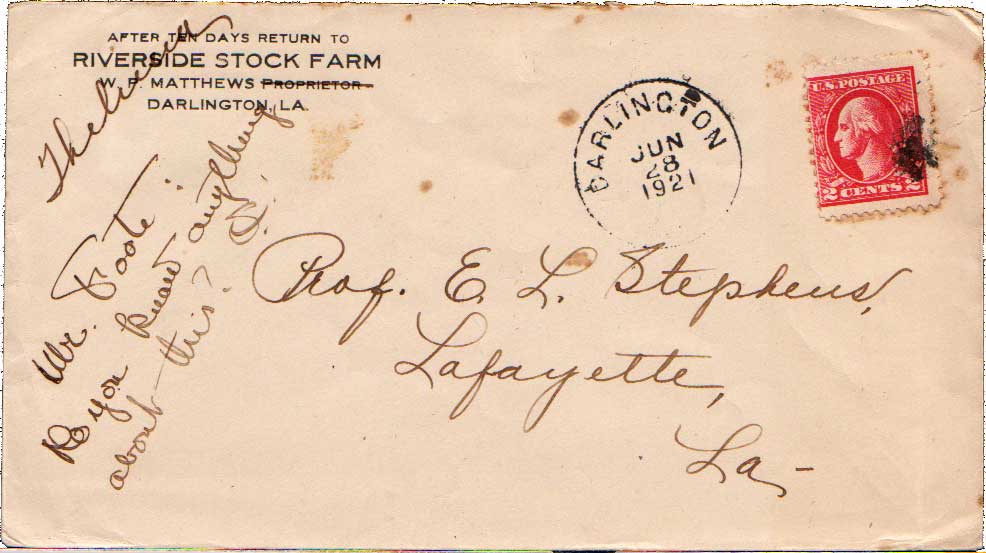 AFTER TEN DAYS RETURN TO
RIVERSIDE STOCK FARM
W. P. MATTHEWS PROPRIETOR
DARLINGTON, LA.
DARLINGTON
JUN
28
1921
U.S. POSTAGE
2 CENTS 2
Prof. E. L. Stephens,
Lafayette,
La-
Mr. Foote:
Do you know anything
about this? S.